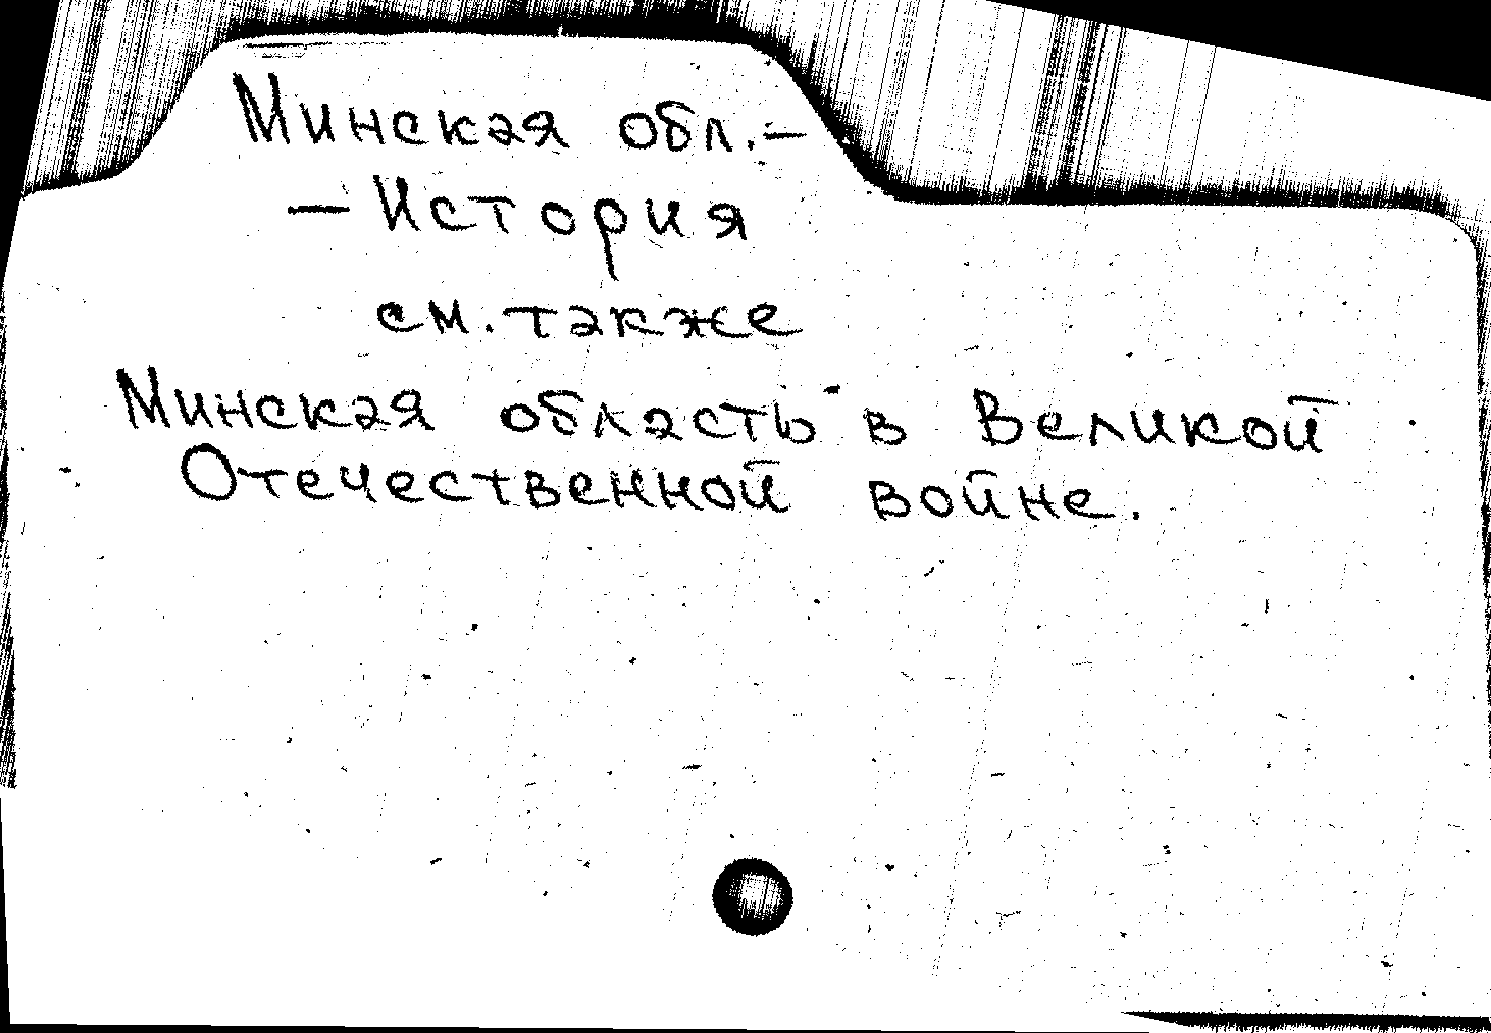 Минская обл.–
– История
см. также
Минская область в Великой
Отечественной войне.